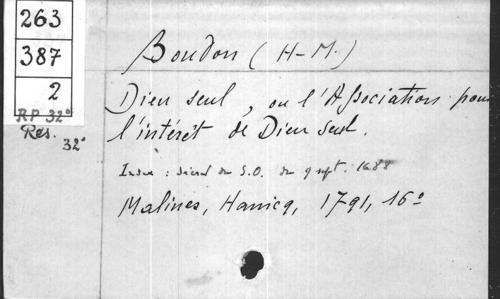 263
387
2
RP 32°
Res. 32°
Boudon (H-M.)
Dieu seul, ou l'Association pour
l'intérêt de Dieu seul.
Index : décret du S.O. du 9 sept. 1688
Malines, Hanicq, 1791, 16°